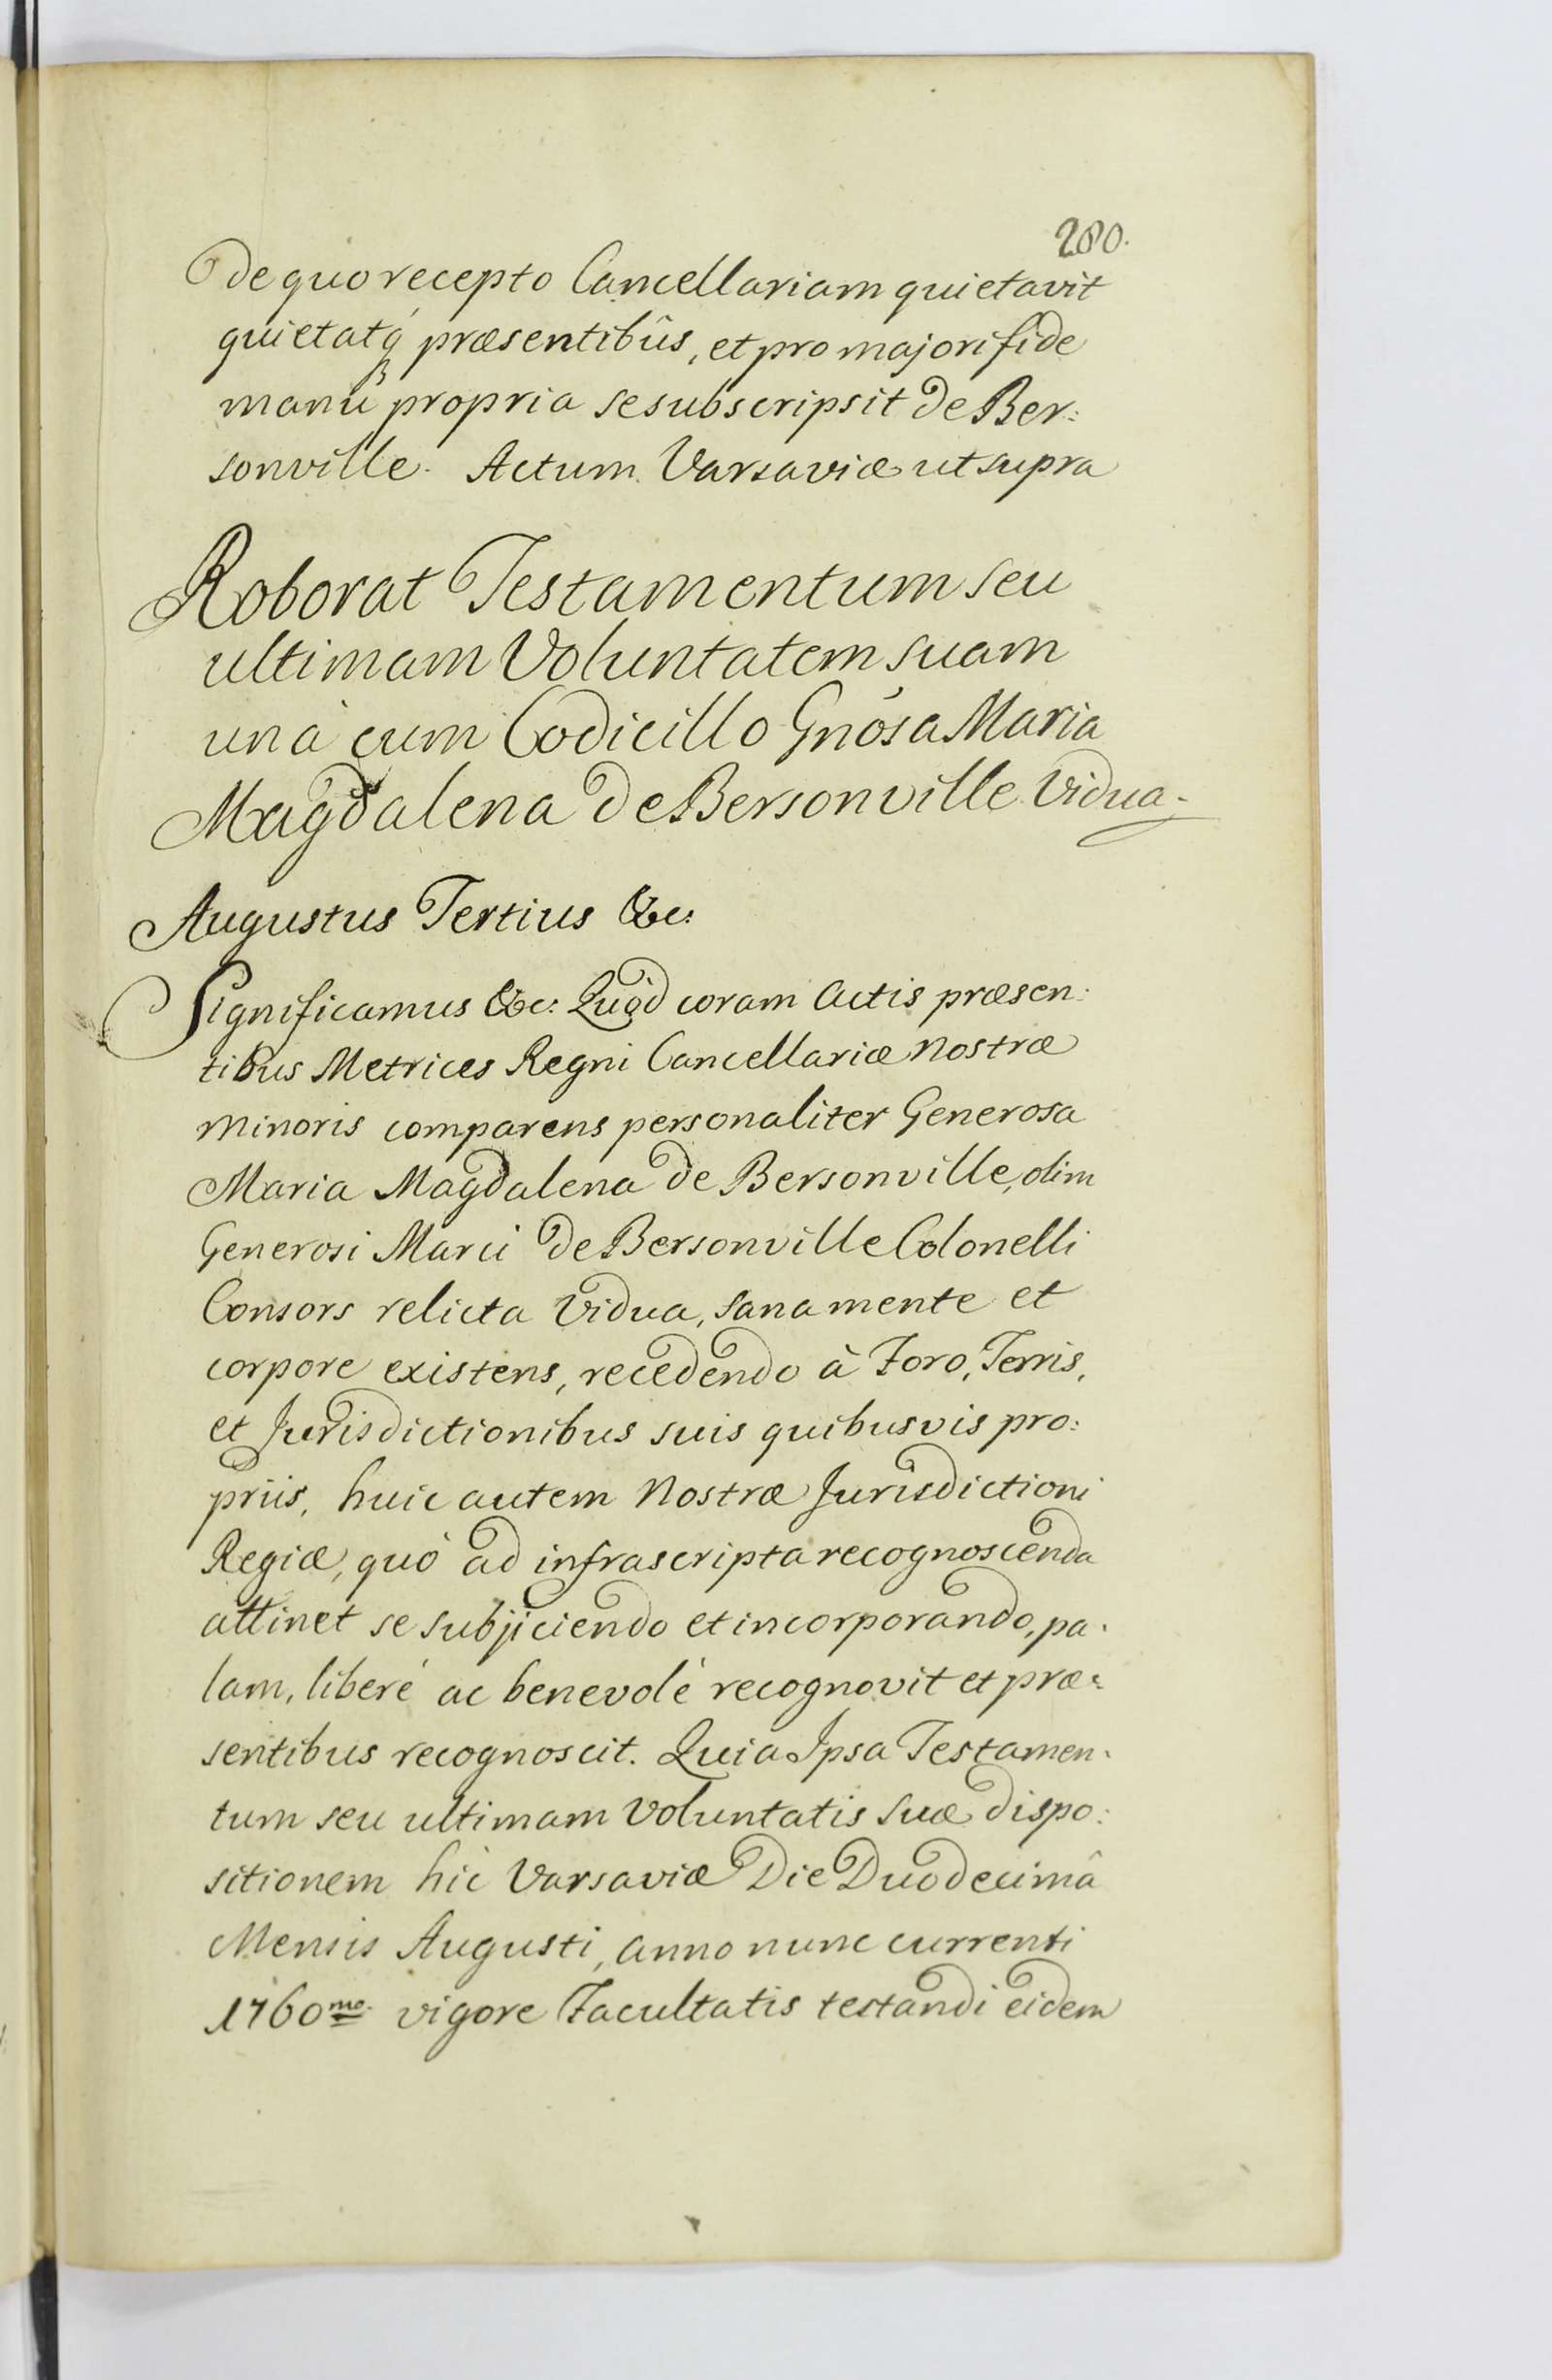 280.
de quo recepto Cancellariam quietavit
quietatq́ præsentibûs, et pro majori fide
manû propria se subscripsit de Ber:
sonville. Actum Varsaviæ ut supra
Roborat Testamentum seu
ultimam Voluntatem suam
unà cum Codicillo Gnósa Maria
Magdalena de Bersonville Vidua.
Augustus Tertius &c:
Significamus &c: Quòd coram Actis præsen:
tibus Metrices Regni Cancellariæ Nostræ
Minoris comparens personaliter Generosa
Maria Magdalena de Bersonville, olim
Generosi Marci de Bersonville Colonelli
Consors relicta Vidua, sana mente et
corpore existens, recedendo à Foro, Terris,
et Jurisdictionibus suis quibusvis pro:
priis, huic autem Nostræ Jurisdictioni
Regiæ, quó ad infrascripta recognoscenda
attinet se subjiciendo et incorporando, pa:
lam, liberé ac benevolè recognovit et præ:
sentibus recognoscit. Quia Ipsa Testamen:
tum seu ultimam Voluntatis suæ dispo:
sitionem hic Varsaviæ Die Duodecimâ
Mensis Augusti, anno nunc currenti
1760mo. vigore Facultatis testandi eidem